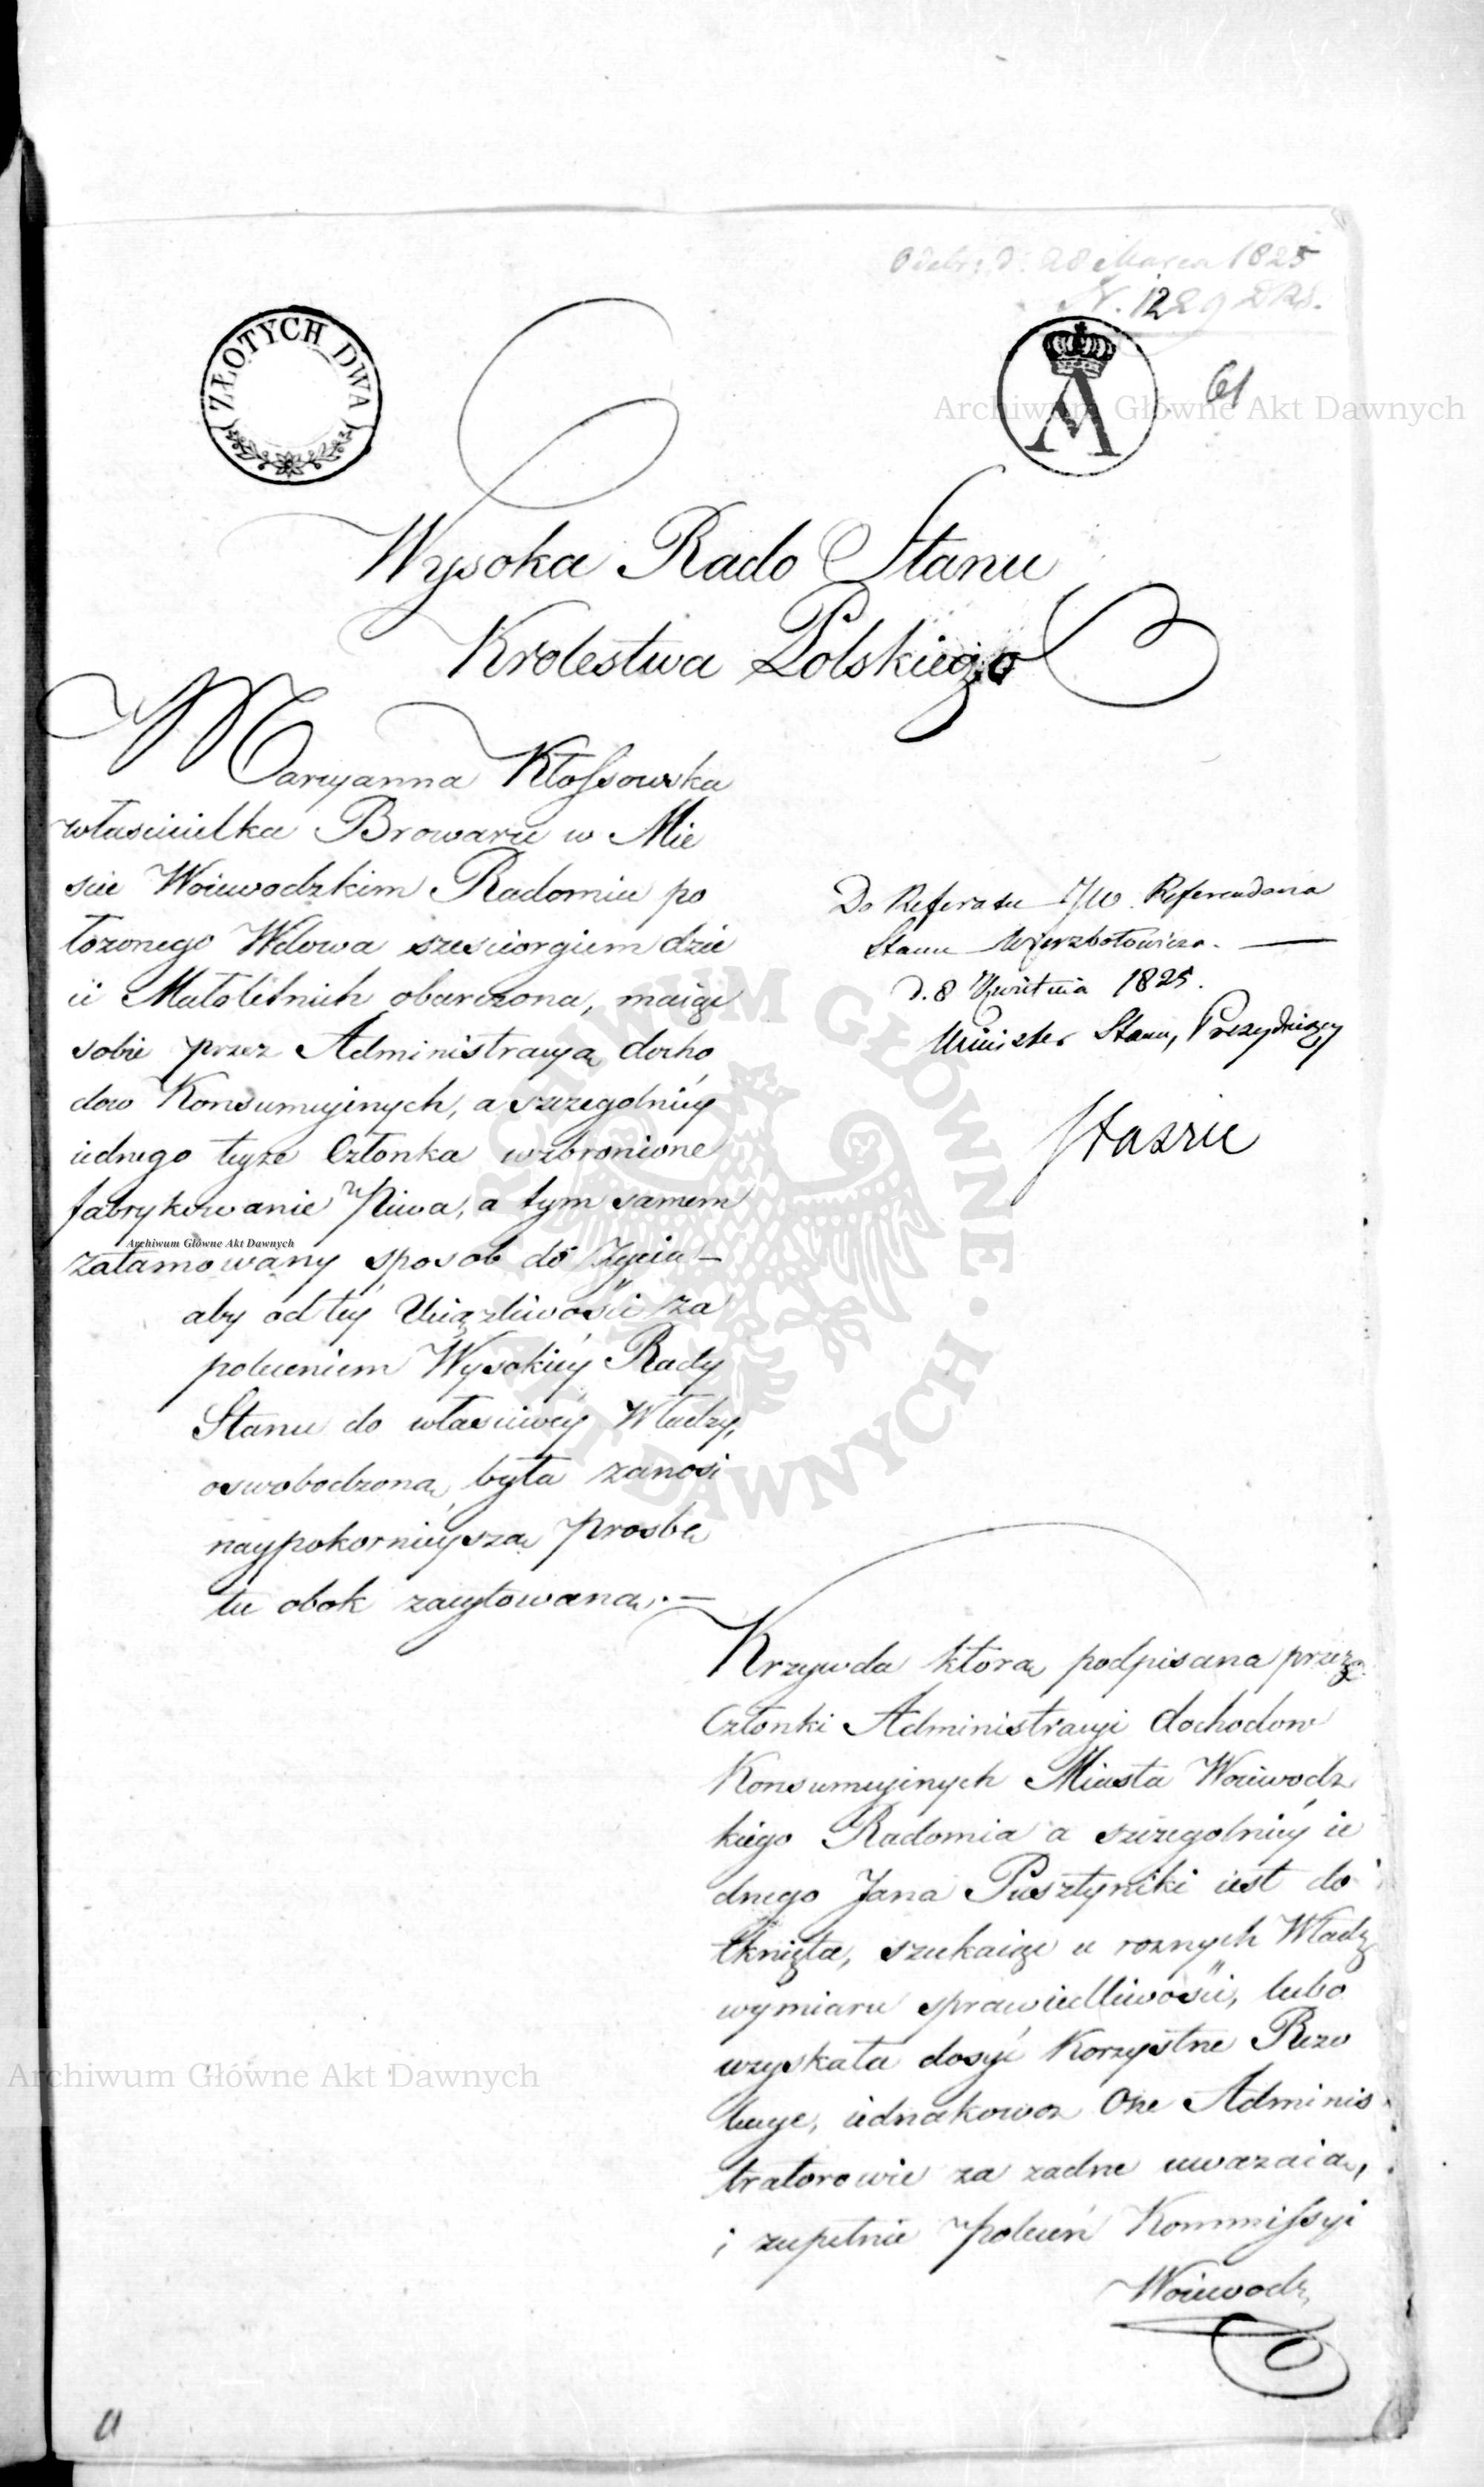 Odebr: d. 28 Marca 1825
N. 1229
ZŁOTYCH DWA
A
61
Archiwum Główne Akt Dawnych
Wysoka Rado Stanu
Krolestwa Polskiego
Maryanna Kłossowska
właścicielka Browaru w Mie
scie Woiewodzkim Radomiu po
łozonego Wdowa szesciorgiem dzie
ci Małoletnich obarczona, maiąc
sobie przez Administracyą docho
dow Konsumcyinych, a szczegolniey
iednego teyze Członka wzbronione
fabrykowanie Piwa, a tym samem
Archiwum Główne Akt Dawnych
zatamowany sposob do Zycia —
aby od tey Uciązliwości za
poleceniem Wysokiey Rady
Stanu do własciwey Władzy,
oswobodzoną była zanosi
naypokornieyszą Prosbę
tu obok zacytowaną. —
Do Referatu JW. Referendarza
Stanu Wierzbołowicza. —
D. 8 Kwietnia 1825.
Minister Stanu, Prezydujący
Staszic
ARCHIWUM GŁÓWNE · AKT DAWNYCH ·
Krzywda którą podpisana przez
Członki Administracyi dochodow
Konsumcyinych Miasta Woiewodz
kiego Radomia a szczegolniey ie
dnego Jana Pusztynìki iest do
tknięta, szukaiąc u roznych Władz
wymiaru sprawiedliwości, lubo
uzyskała dosyć Korzystne Rezo
lucye, iednakowoz One Adminis
tratorowie za zadne uwazaią,
i zupełnie Poleceń Kommissyi
Woiewodz,
Archiwum Główne Akt Dawnych